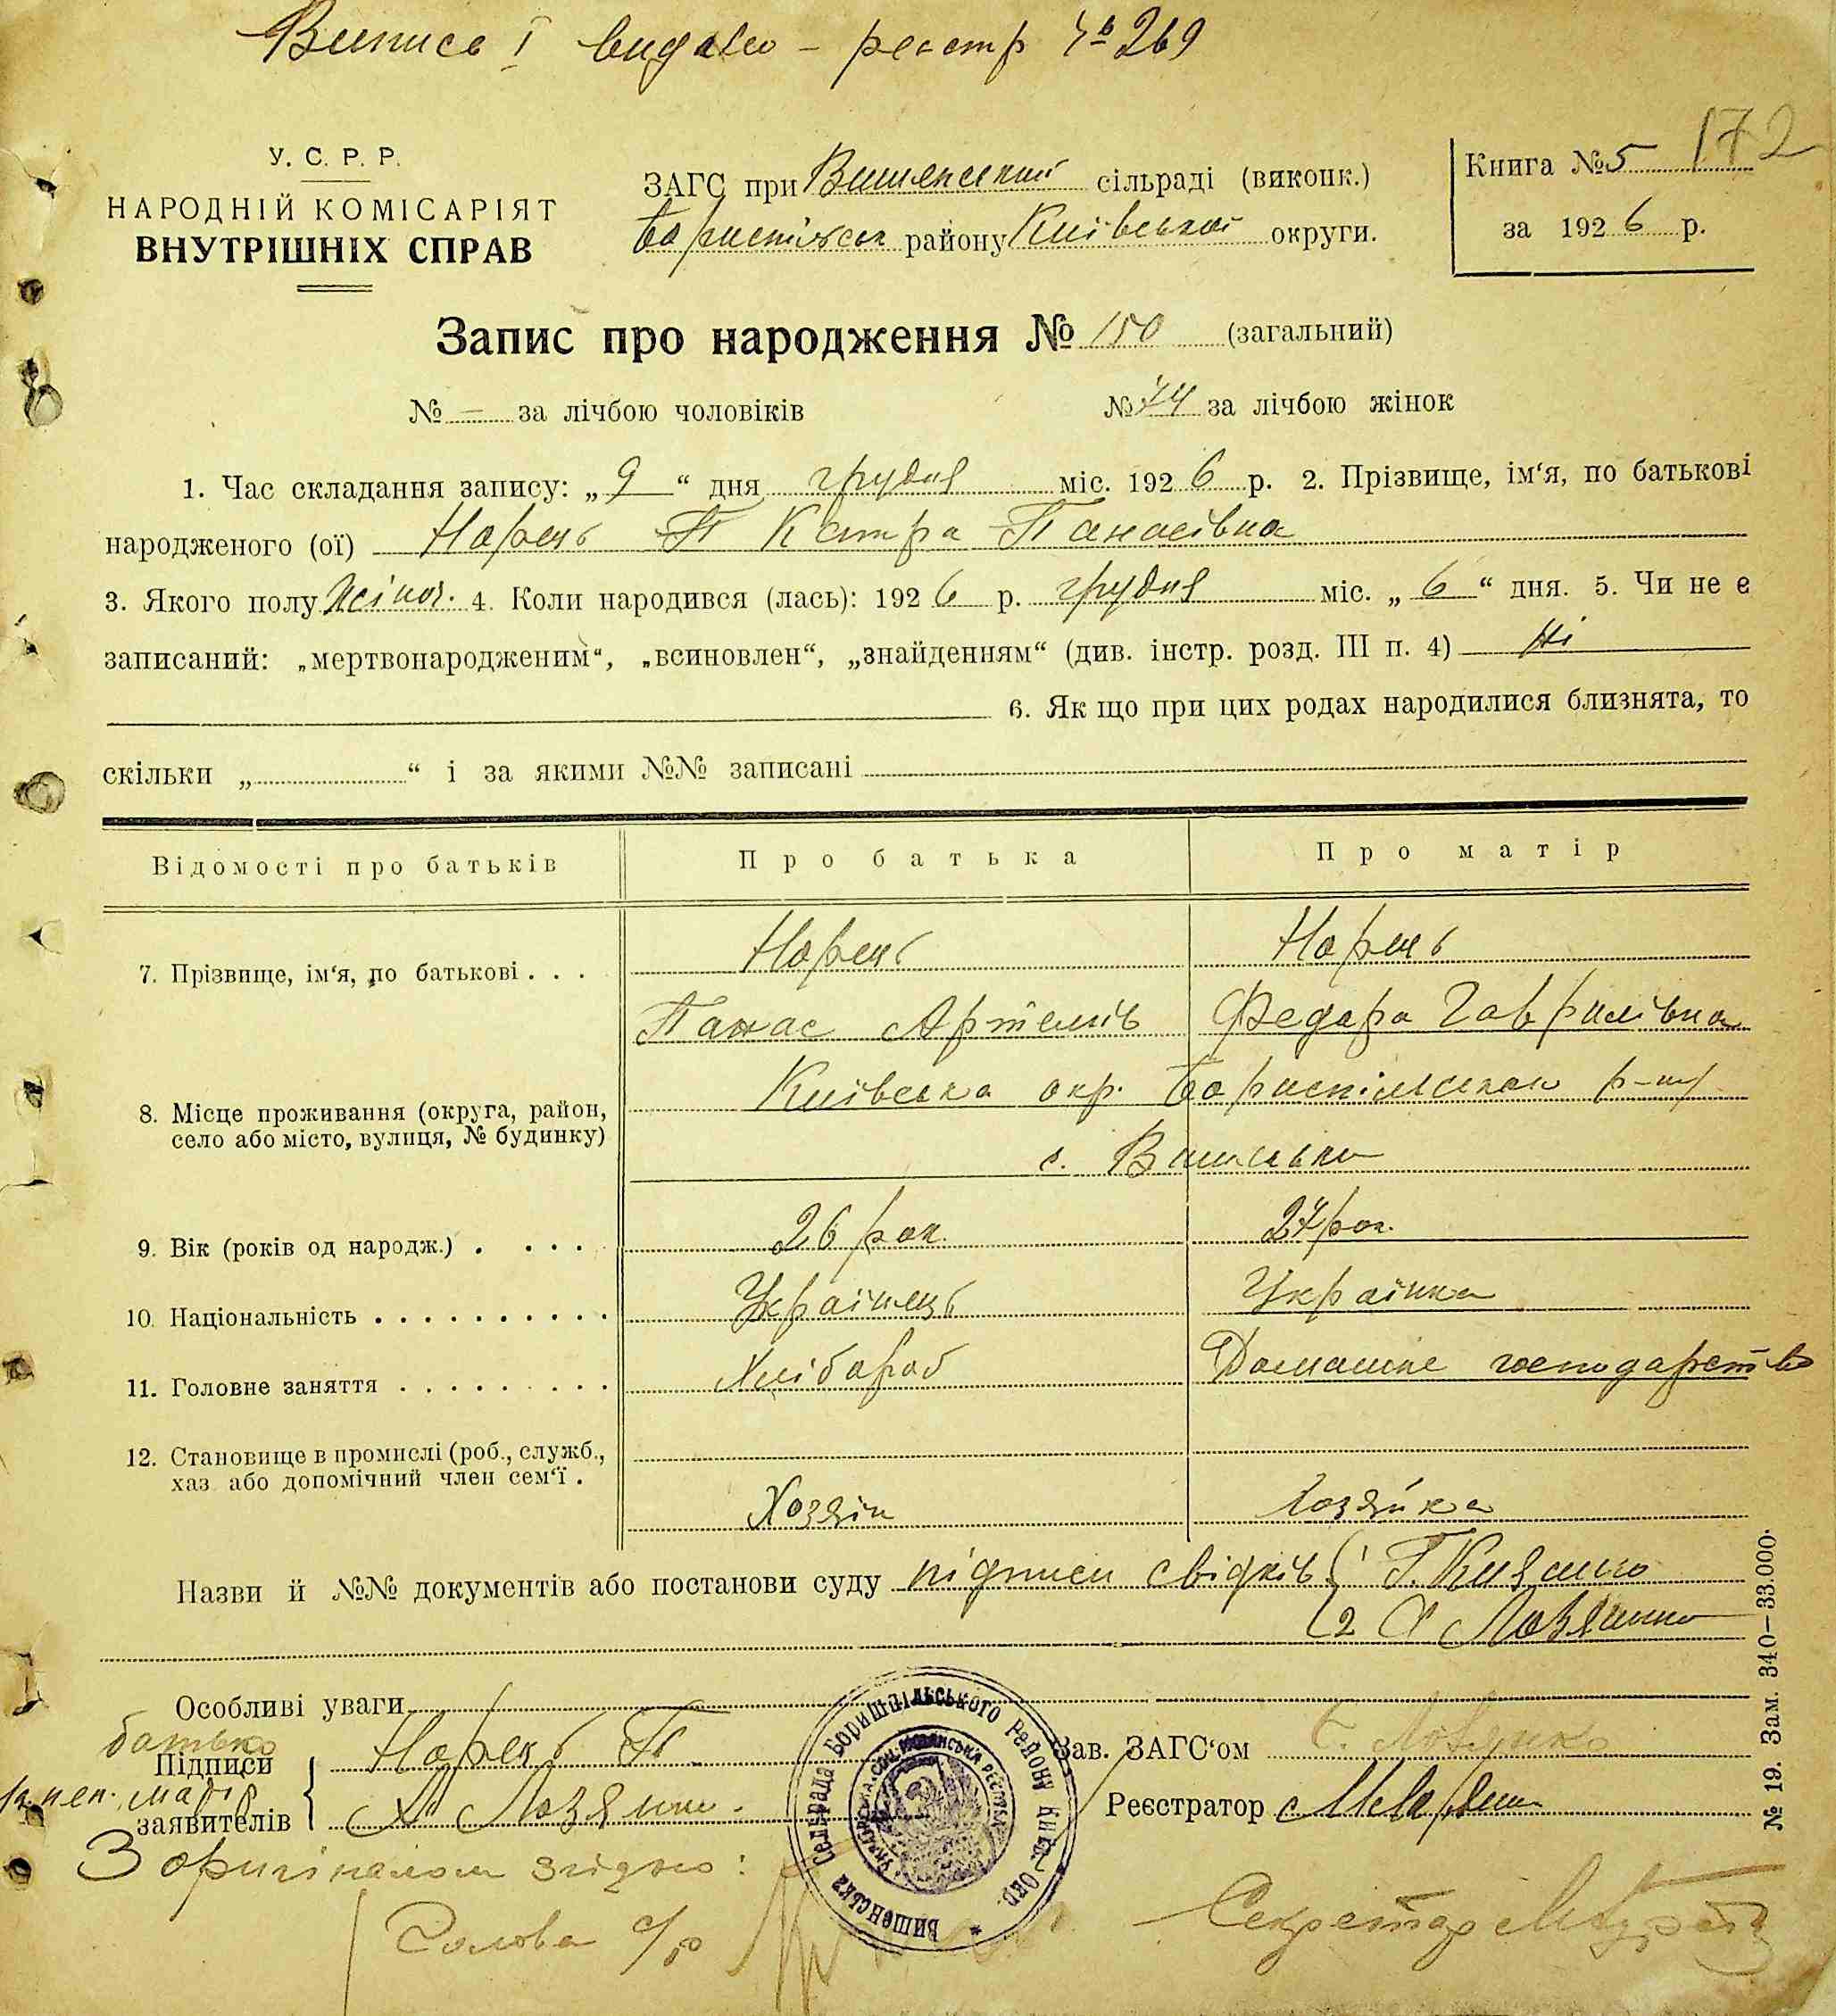 Випись I видано – реєстр № 269
172
У. С. Р. Р.
НАРОДНІЙ КОМІСАРІЯТ
ВНУТРІШНІХ СПРАВ
ЗАГС при Вишенській сільраді (виконк.)
району Київської округи.
Книга № 5
за 1926 р.
Запис про народження № 150 (загальний)
№ – за лічбою чоловіків
№ 74 за лічбою жінок
1. Час складання запису: „9“ дня грудня міс. 1926 р. 2. Прізвище, ім‘я, по батькові
народженого (ої) Норець П Кетра Панасівна
3. Якого полу жіноч. 4. Коли народився (лась): 1926 р. грудня міс. „6“ дня. 5. Чи не є
записаний: „мертвонародженим“, „всиновлен“, „знайденням“ (див. інстр. розд. III п. 4) Ні
6. Як що при цих родах народилися близнята, то
скільки „ “ і за якими №№ записані
Відомості про батьків
Про батька
Про матір
7. Прізвище, ім‘я, по батькові . . .
Норець
Норець
Панас Артемів
Федора Гаврилівна
8. Місце проживання (округа, район,
село або місто, вулиця, № будинку)
Київська окр. Бориспільского р-ну
с. Вишеньки
9. Вік (років од народж.) . . . .
26 рок.
27 рок.
10. Національність . . . . . . . . . .
Українець
Українка
11. Головне заняття . . . . . . . . .
Хлібороб
Домашнє господарство
12. Становище в промислі (роб., служб.,
хаз або допомічний член сем‘ї .
Хозяїн
Хозяйка
Назви й №№ документів або постанови суду підписи свідків { 1 Г. Кияшко
2 Лозяшко
Особливі уваги
батько
Підписи
заявителів
Норець П.
Зав. ЗАГС‘ом
Реєстратор
Вишенська Сельрада Боришпільського району Київ. Окр.
З оригіналом згідно:
Голова с/р
Секретар
№ 19. Зам. 340–33.000.